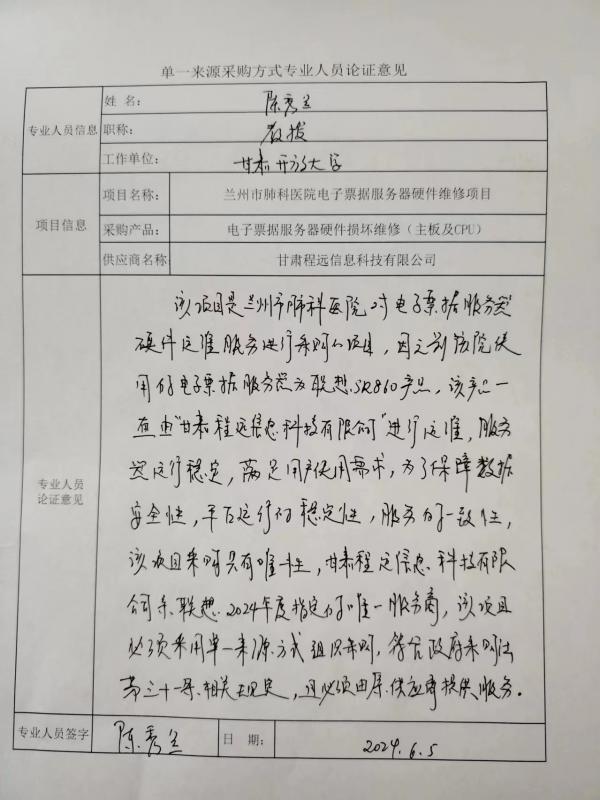 单一来源采购方式专业人员论证意见
专业人员信息
姓 名: 陈秀兰
职称: 教授
工作单位: 甘肃开放大学
项目信息
项目名称: 兰州市肺科医院电子票据服务器硬件维修项目
采购产品: 电子票据服务器硬件损坏维修（主板及CPU）
供应商名称: 甘肃程远信息科技有限公司
专业人员
论证意见
该项目是兰州市肺科医院对电子票据服务器
硬件运维服务进行采购的项目，因之前该院使
用的电子票据服务器为联想SR860产品，该产品一
直由"甘肃程远信息科技有限公司"进行运维，服务
器运行稳定，满足用户使用需求，为了保障数据
安全性，平台运行的稳定性，服务的一致性，
该项目采购具有唯一性，甘肃程远信息科技有限
公司系联想2024年度指定的唯一服务商，该项目
必须采用单一来源方式组织采购，符合政府采购法
第三十一条相关规定，且必须由原供应商提供服务。
专业人员签字 陈秀兰 日 期: 2024.6.5